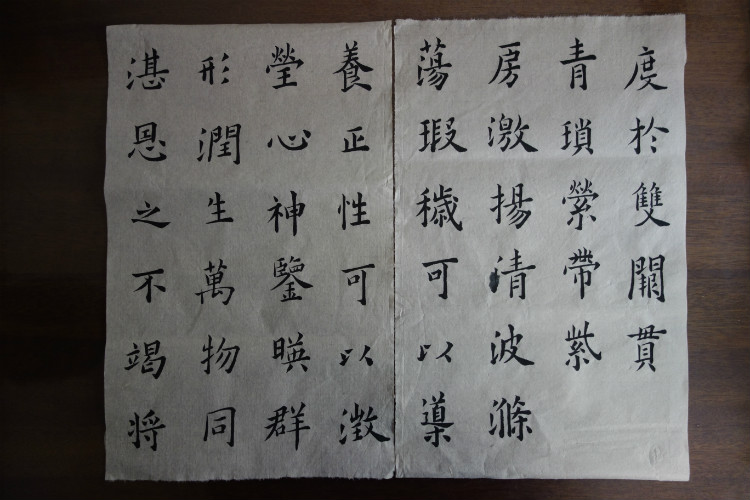 度於雙闕貫
青瑣縈帶紫
房激揚清波滌
蕩瑕穢可以導
養正性可以澂
瑩心神鑒暎群
形潤生萬物同
湛恩之不竭将